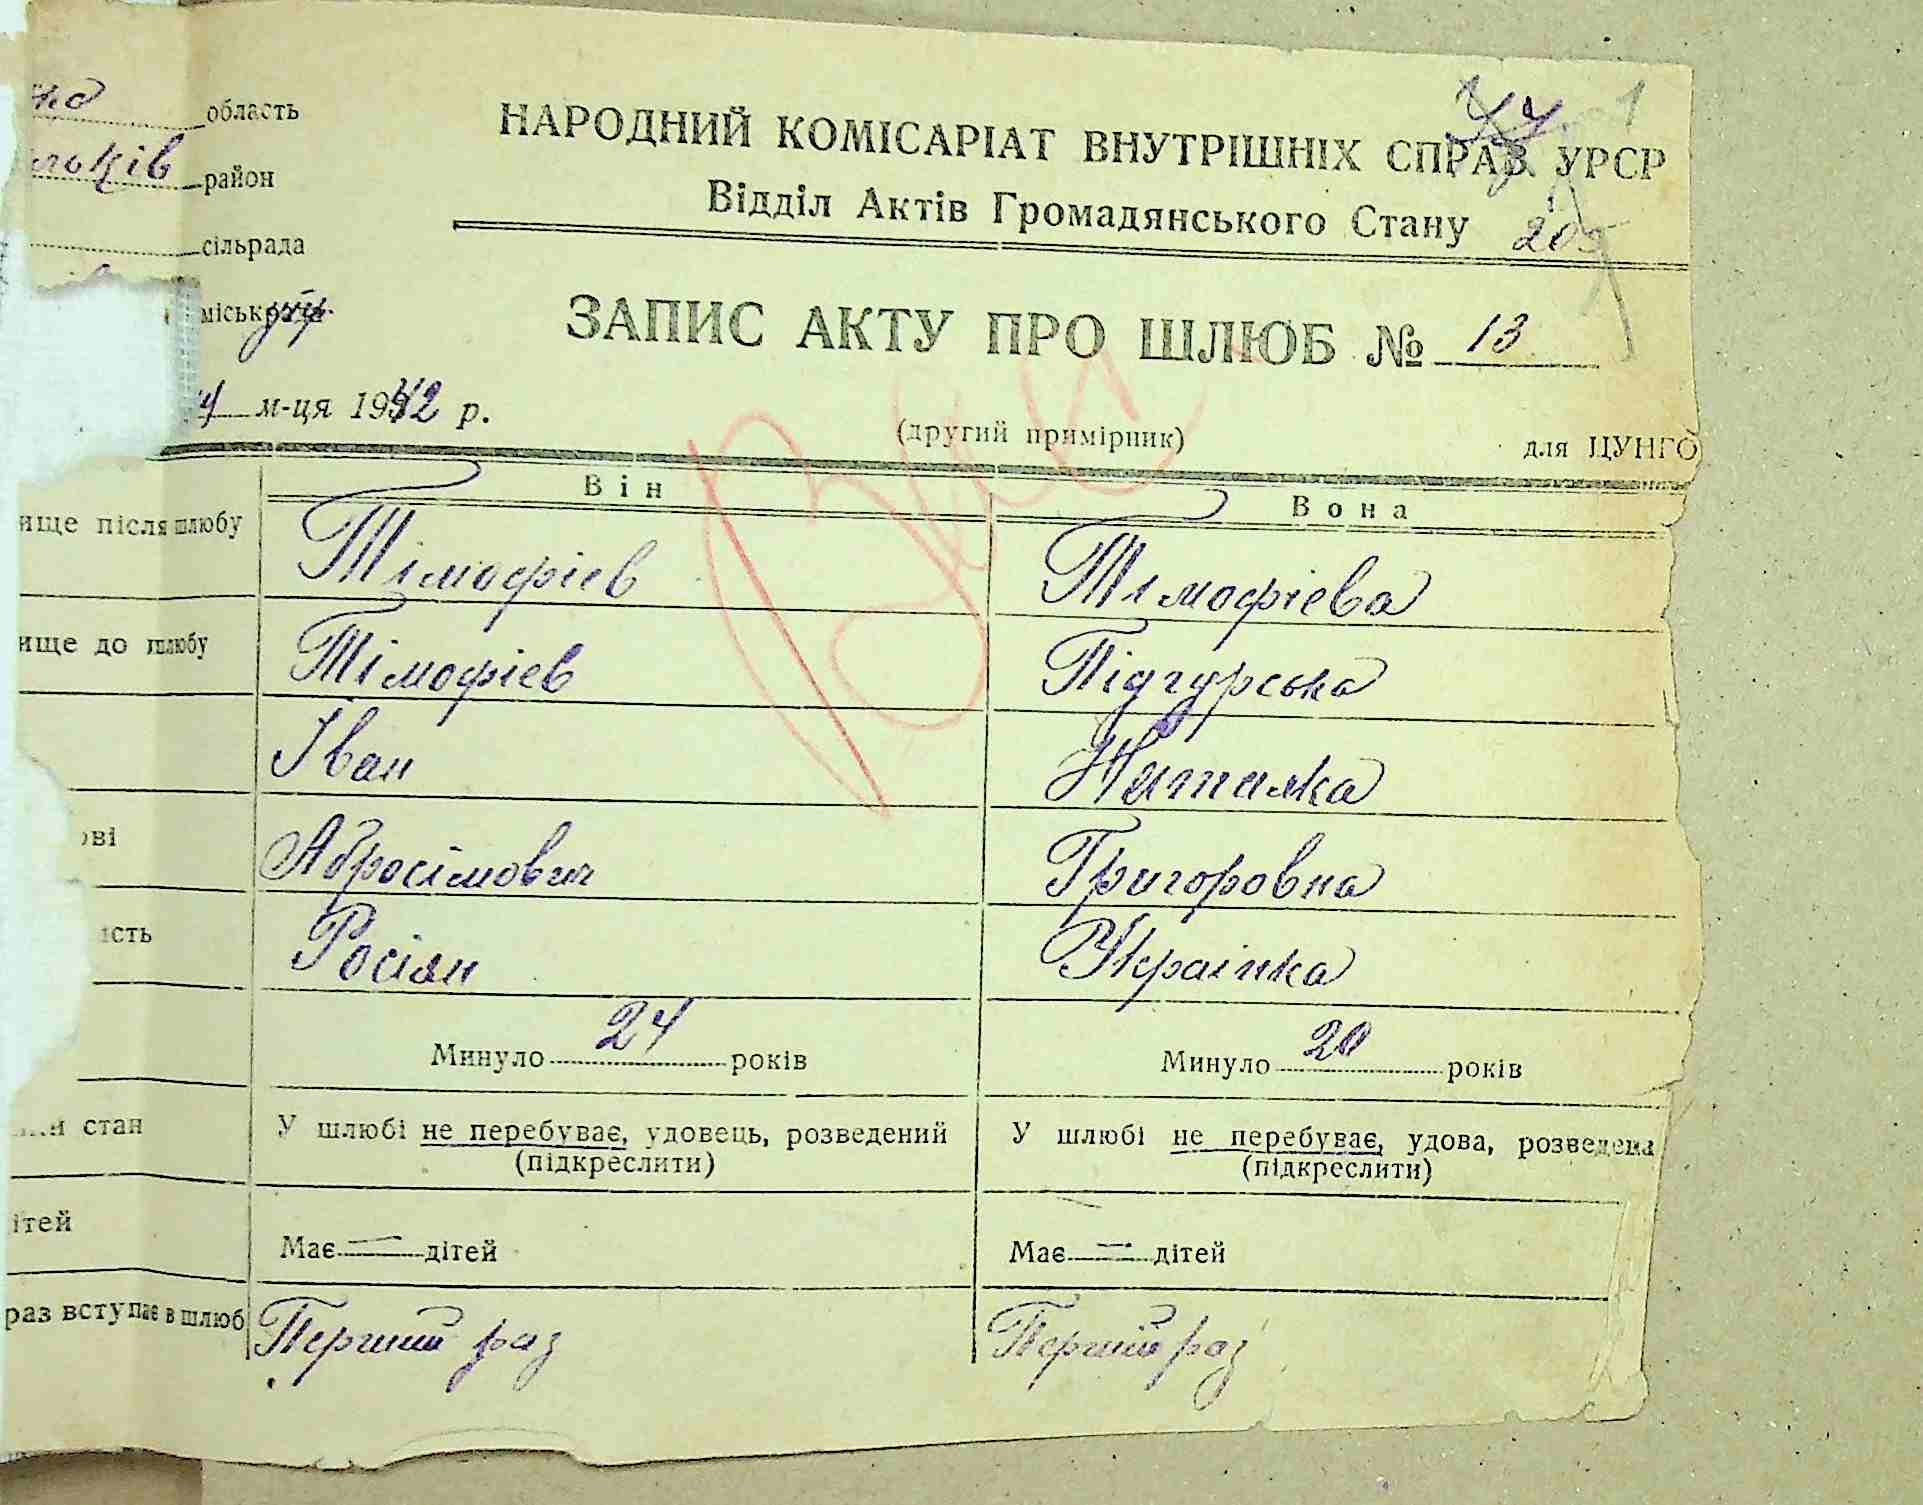 область
НАРОДНИЙ КОМІСАРІАТ ВНУТРІШНІХ СПРАВ УРСР
район
Відділ Актів Громадянського Стану
сільрада
міськрада
ЗАПИС АКТУ ПРО ШЛЮБ № 13
м-ця 1942 р.
(другий примірник)
для ЦУНГО
Він
Вона
ище після шлюбу
Тімофіев
Тімофієва
ище до шлюбу
Тімофіев
Підгурська
Іван
Наталка
ові
Абросімович
Григоровна
ість
Росіян
Українка
Минуло 24 років
Минуло 20 років
стан
У шлюбі не перебуває, удовець, розведений
(підкреслити)
У шлюбі не перебуває, удова, розведена
(підкреслити)
ітей
Має — дітей
Має — дітей
раз вступає в шлюб
Перший раз
Перший раз